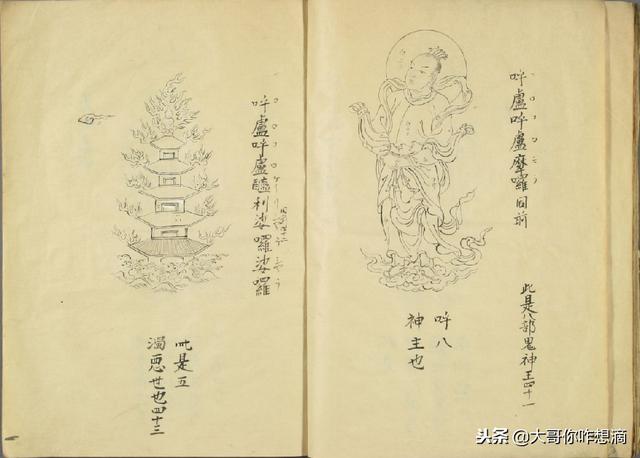 呼盧呼盧摩囉同前
此是八部鬼神王四十一
呼八
神主也
呼盧呼盧醯利娑囉娑囉
此是五
濁惡世也四十三
头条 @大哥你咋想滴